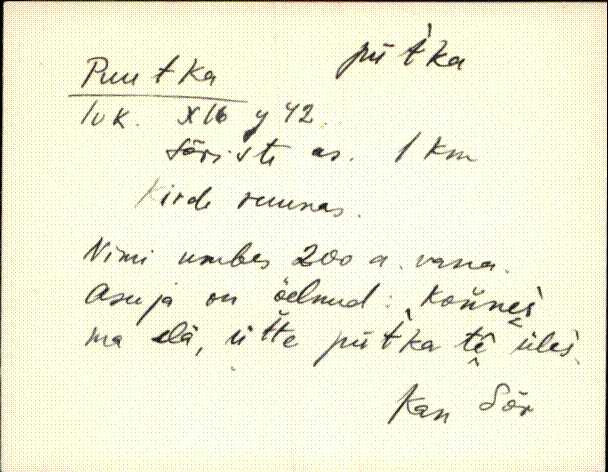 Puutka pūt̀ka
lvk. X16 y 42.
Sõriste as. 1 km
Kirde suunas.
Nimi umbes 200 a. vana.
Asuja on öelnud: Koňneś
ma elä, ütte pūt̀ka tê üleś.
Kan Sõr